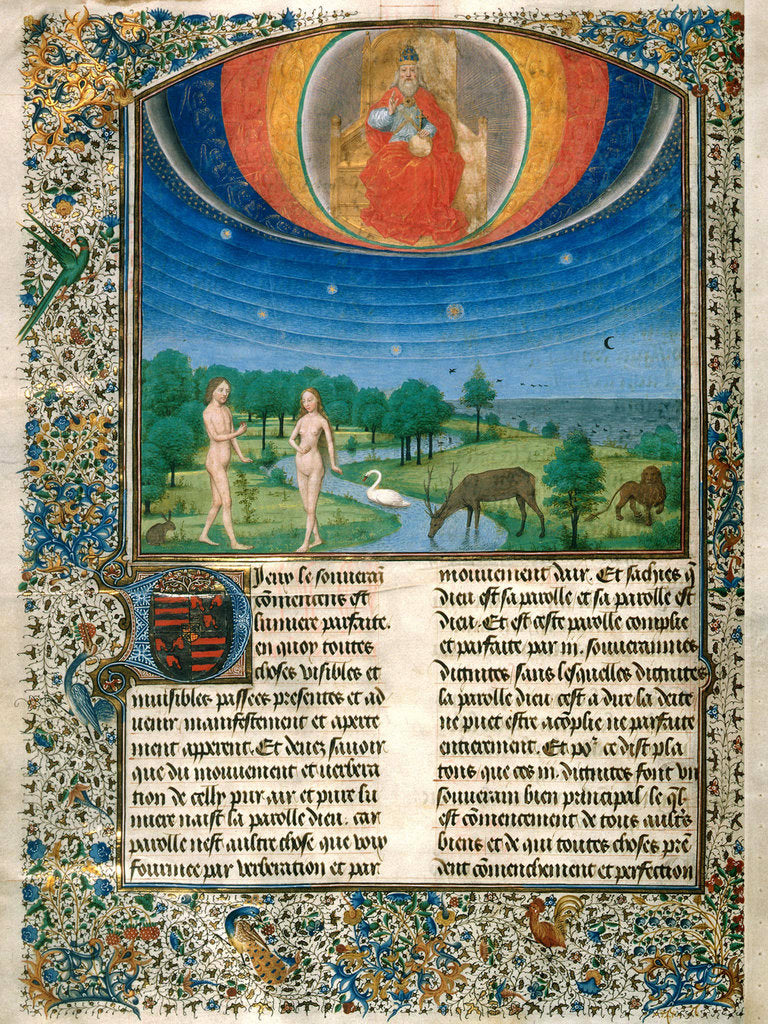 Dieu le souverai
cōmencens est
lumiere parfaite.
en quoy toutes
choses visibles et
inuisibles passees presentes et ad
uenir manifestement et aperte
ment apperent. Et deuez sauoir
que du mouuement et uerbera
tion de celly pur air et pure lu
miere naist la parolle dieu. car
parolle nest aultre chose que voix
fourmee par verberation et par
mouuement dair. Et sachies q̄
dieu est sa parolle et sa parolle est
dieu. Et est ceste parolle complie
et parfaite par iii. souuerainnes
dictnites sans lesquelles dictnites
la parolle dieu cest a dire la deite
ne puet estre acōplie ne parfaite
entierement. Et po² ce dist pla
tons que ces iii. dictnites sont vn
souuerain bien principal / le q̄l
est cōmencement de tous ault's
biens et de qui toutes choses prē
dent cōmenchement et perfection